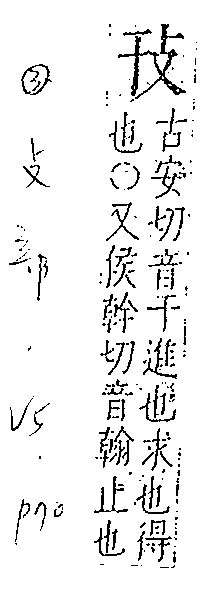 㪋
古安切音干進也求也得
也○又侯幹切音翰止也
③攴部.V5.p70